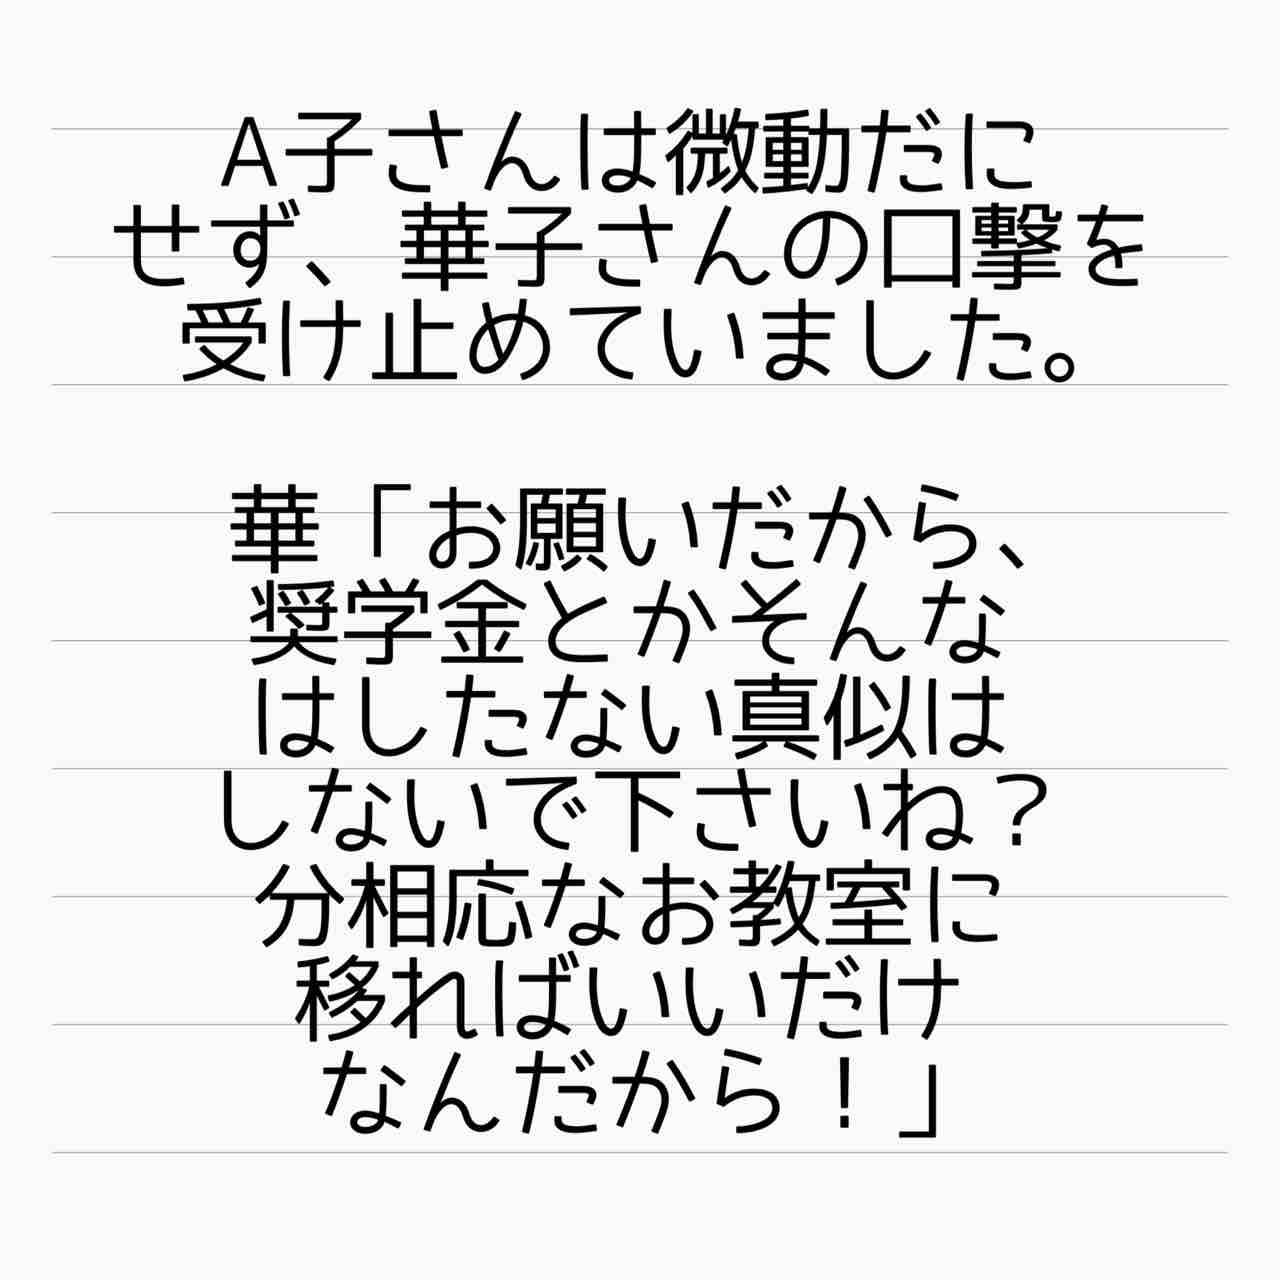 A子さんは微動だに
せず、華子さんの口撃を
受け止めていました。
華「お願いだから、
奨学金とかそんな
はしたない真似は
しないで下さいね？
分相応なお教室に
移ればいいだけ
なんだから！」